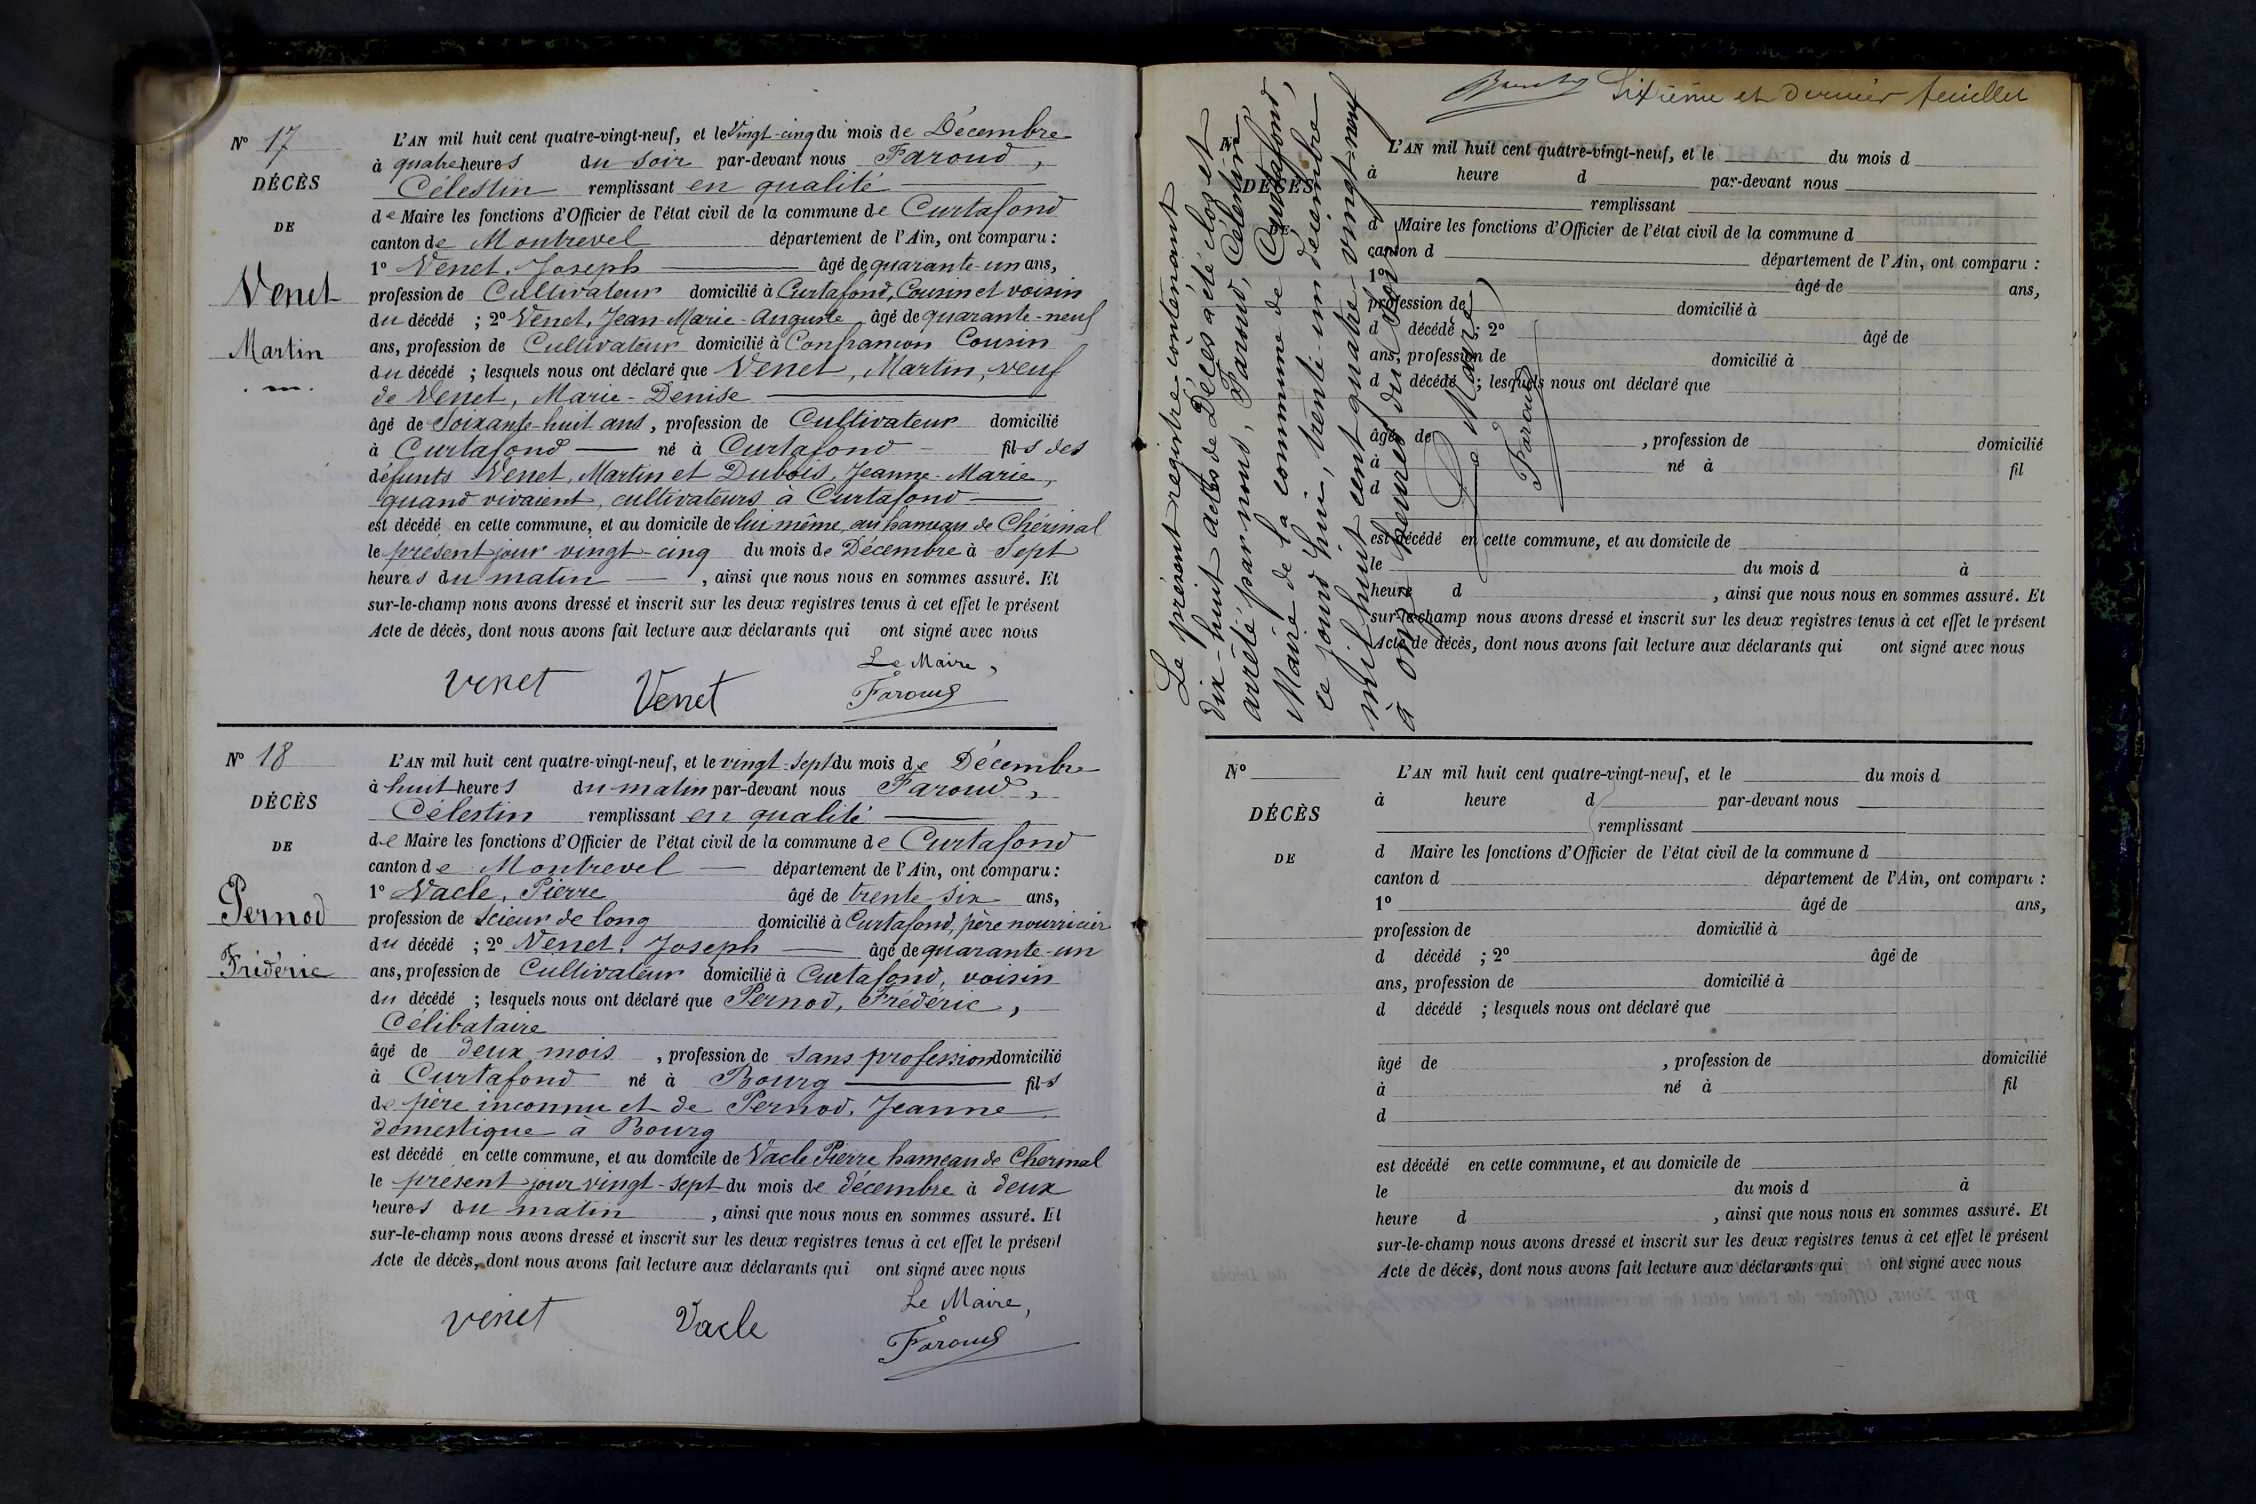 N° 17
DÉCÈS
DE
Venet
Martin
L'AN mil huit cent quatre-vingt-neuf, et le Vingt-cinq du mois de Décembre
à quatre heures du soir par-devant nous Faroud,
Célestin remplissant en qualité
de Maire les fonctions d'Officier de l'état civil de la commune de Curtafond
canton de Montrevel département de l'Ain, ont comparu :
1° Venet, Joseph âgé de quarante-un ans,
profession de Cultivateur domicilié à Curtafond, Cousin et voisin
du décédé ; 2° Venet, Jean-Marie-Auguste âgé de quarante-neuf
ans, profession de Cultivateur domicilié à Confrançon Cousin
du décédé ; lesquels nous ont déclaré que Venet, Martin, veuf
de Venet, Marie-Denise
âgé de soixante-huit ans, profession de Cultivateur domicilié
à Curtafond né à Curtafond fils des
défunts Venet, Martin et Dubois, Jeanne-Marie,
quand vivaient, cultivateurs à Curtafond
est décédé en cette commune, et au domicile de lui même, au hameau de Chérinal
le présent jour vingt-cinq du mois de Décembre à Sept
heures du matin , ainsi que nous nous en sommes assuré. Et
sur-le-champ nous avons dressé et inscrit sur les deux registres tenus à cet effet le présent
Acte de décès, dont nous avons fait lecture aux déclarants qui ont signé avec nous
Le Maire,
venet Venet Faroud
N° 18
DÉCÈS
DE
Pernod
Frédéric
L'AN mil huit cent quatre-vingt-neuf, et le vingt-sept du mois de Décembre
à huit heures du matin par-devant nous Faroud,
Célestin remplissant en qualité
de Maire les fonctions d'Officier de l'état civil de la commune de Curtafond
canton de Montrevel département de l'Ain, ont comparu :
1° Vacle, Pierre âgé de trente six ans,
profession de Scieur de long domicilié à Curtafond, père nourricier
du décédé ; 2° Venet, Joseph âgé de quarante-un
ans, profession de Cultivateur domicilié à Curtafond, voisin
du décédé ; lesquels nous ont déclaré que Pernod, Frédéric,
Célibataire
âgé de deux mois , profession de sans profession domicilié
à Curtafond né à Bourg fils
de père inconnu et de Pernod, Jeanne
domestique à Bourg
est décédé en cette commune, et au domicile de Vacle Pierre hameau de Cherinal
le présent jour vingt-sept du mois de décembre à deux
heures du matin , ainsi que nous nous en sommes assuré. Et
sur-le-champ nous avons dressé et inscrit sur les deux registres tenus à cet effet le présent
Acte de décès, dont nous avons fait lecture aux déclarants qui ont signé avec nous
Le Maire,
venet Vacle Faroud
Sixième et dernier feuillet
Le présent registre contenant
dix-huit actes de Décès a été clos et
arrêté par nous, Faroud, Célestin,
Maire de la commune de Curtafond,
ce jourd'hui, trente-un décembre
mil huit cent quatre-vingt-neuf
à onze heures du soir
Le Maire
Faroud
N°
DÉCÈS
L'AN mil huit cent quatre-vingt-neuf, et le du mois d
à heure d par-devant nous
remplissant
d Maire les fonctions d'Officier de l'état civil de la commune d
canton d département de l'Ain, ont comparu :
1° âgé de ans,
profession de domicilié à
d décédé ; 2° âgé de
ans, profession de domicilié à
d décédé ; lesquels nous ont déclaré que
âgé de , profession de domicilié
à né à fil
d
est décédé en cette commune, et au domicile de
le du mois d à
heure d , ainsi que nous nous en sommes assuré. Et
sur-le-champ nous avons dressé et inscrit sur les deux registres tenus à cet effet le présent
Acte de décès, dont nous avons fait lecture aux déclarants qui ont signé avec nous
N°
DÉCÈS
DE
L'AN mil huit cent quatre-vingt-neuf, et le du mois d
à heure d par-devant nous
remplissant
d Maire les fonctions d'Officier de l'état civil de la commune d
canton d département de l'Ain, ont comparu :
1° âgé de ans,
profession de domicilié à
d décédé ; 2° âgé de
ans, profession de domicilié à
d décédé ; lesquels nous ont déclaré que
âgé de , profession de domicilié
à né à fil
d
est décédé en cette commune, et au domicile de
le du mois d à
heure d , ainsi que nous nous en sommes assuré. Et
sur-le-champ nous avons dressé et inscrit sur les deux registres tenus à cet effet le présent
Acte de décès, dont nous avons fait lecture aux déclarants qui ont signé avec nous